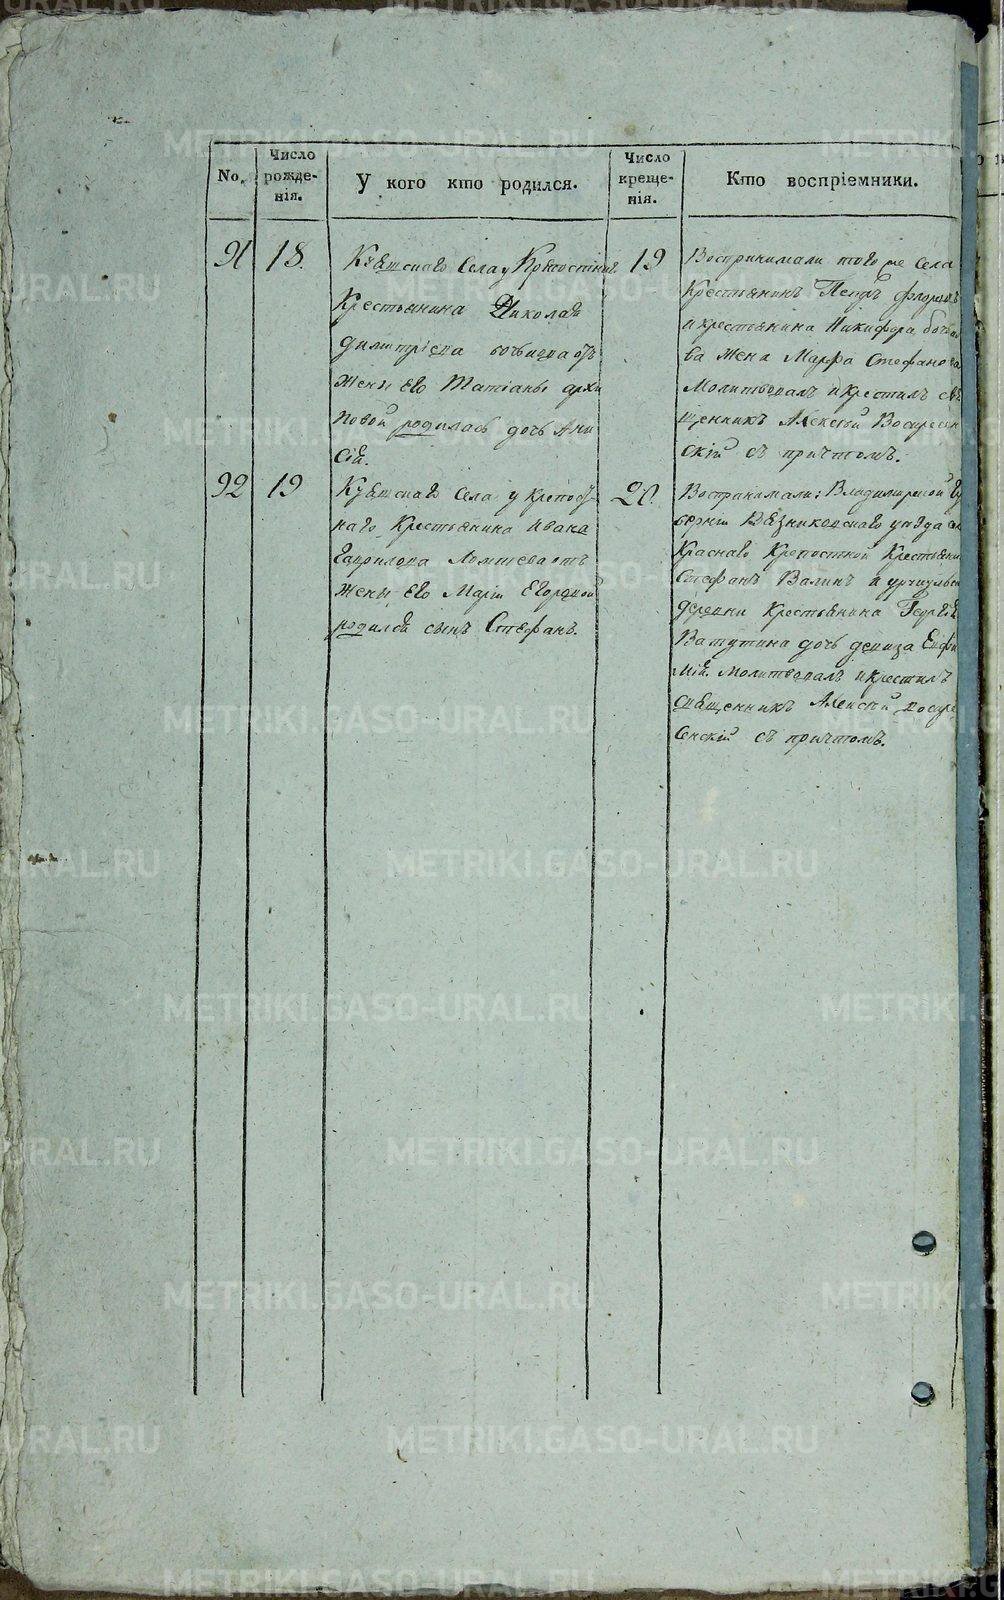 No.
Число рожде-нія.
У кого кто родился.
Число креще-нія.
Кто воспріемники.
91
18.
Села у Крѣпостнаго
Крестьянина Николая
димитріева отъ
жены Его Татіаны архи
повой родилась дочь Ани
сія.
19
Воспринимали того же Села
Крестьянинъ Петръ
и крестьянина Никифора
ва жена Марфа Стефанова
Молитвовалъ и крестилъ свя
щенникъ Алексѣй Воскресен
скій съ причтомъ.
92
19
Села у крепост
наго Крестьянина Ивана
Гаврилова отъ
жены Его Маріи Егоровой
родился сынъ Стефанъ.
20.
Воспранимали: Владимирской гу
берніи Вязниковскаго уѣзда
Краснаго Крепостной Крестьяни
Стефанъ Валинъ и
деревни Крестьянина Георгія
Ватутина дочь девица Евфи
мія. Молитвовалъ и крестилъ
священникъ Алексѣй воскре
сенскій съ причтомъ.
METRIKI.GASO-URAL.RU